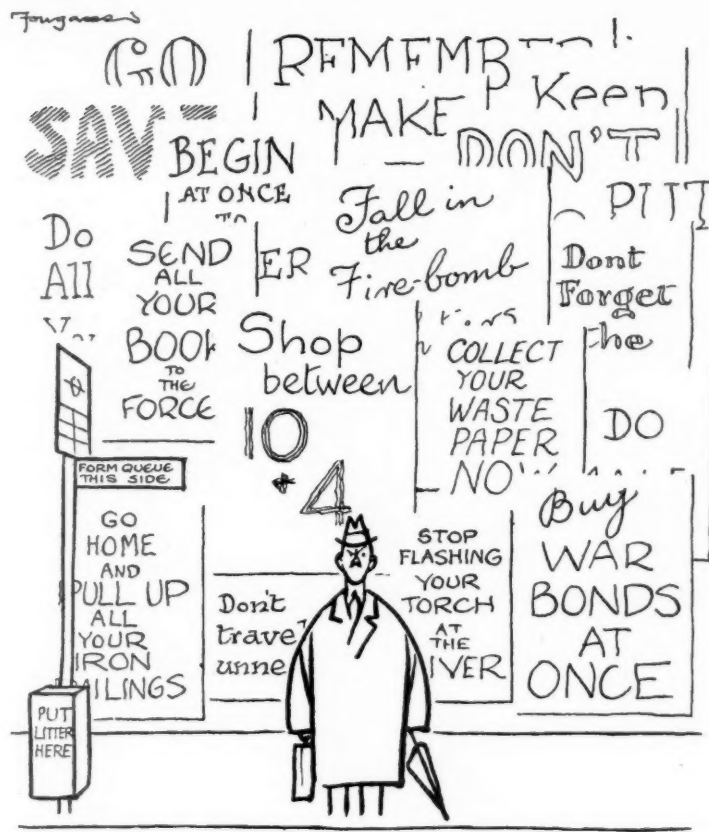 Fougasse
GO
SAVE
BEGIN
AT ONCE
TO
REMEMBER
MAKE
Keen
DON'T
PUT
Do
All
SEND
ALL
YOUR
BOOK
TO
THE
FORCE
ER
Fall in
the
Fire-bomb
Dont
Forget
the
Shop
between
10
+ 4
COLLECT
YOUR
WASTE
PAPER
NOW
DO
FORM QUEUE
THIS SIDE
GO
HOME
AND
PULL UP
ALL
YOUR
IRON
RAILINGS
Don't
travel
unne
STOP
FLASHING
YOUR
TORCH
AT
THE
IVER
Buy
WAR
BONDS
AT
ONCE
PUT
LITTER
HERE